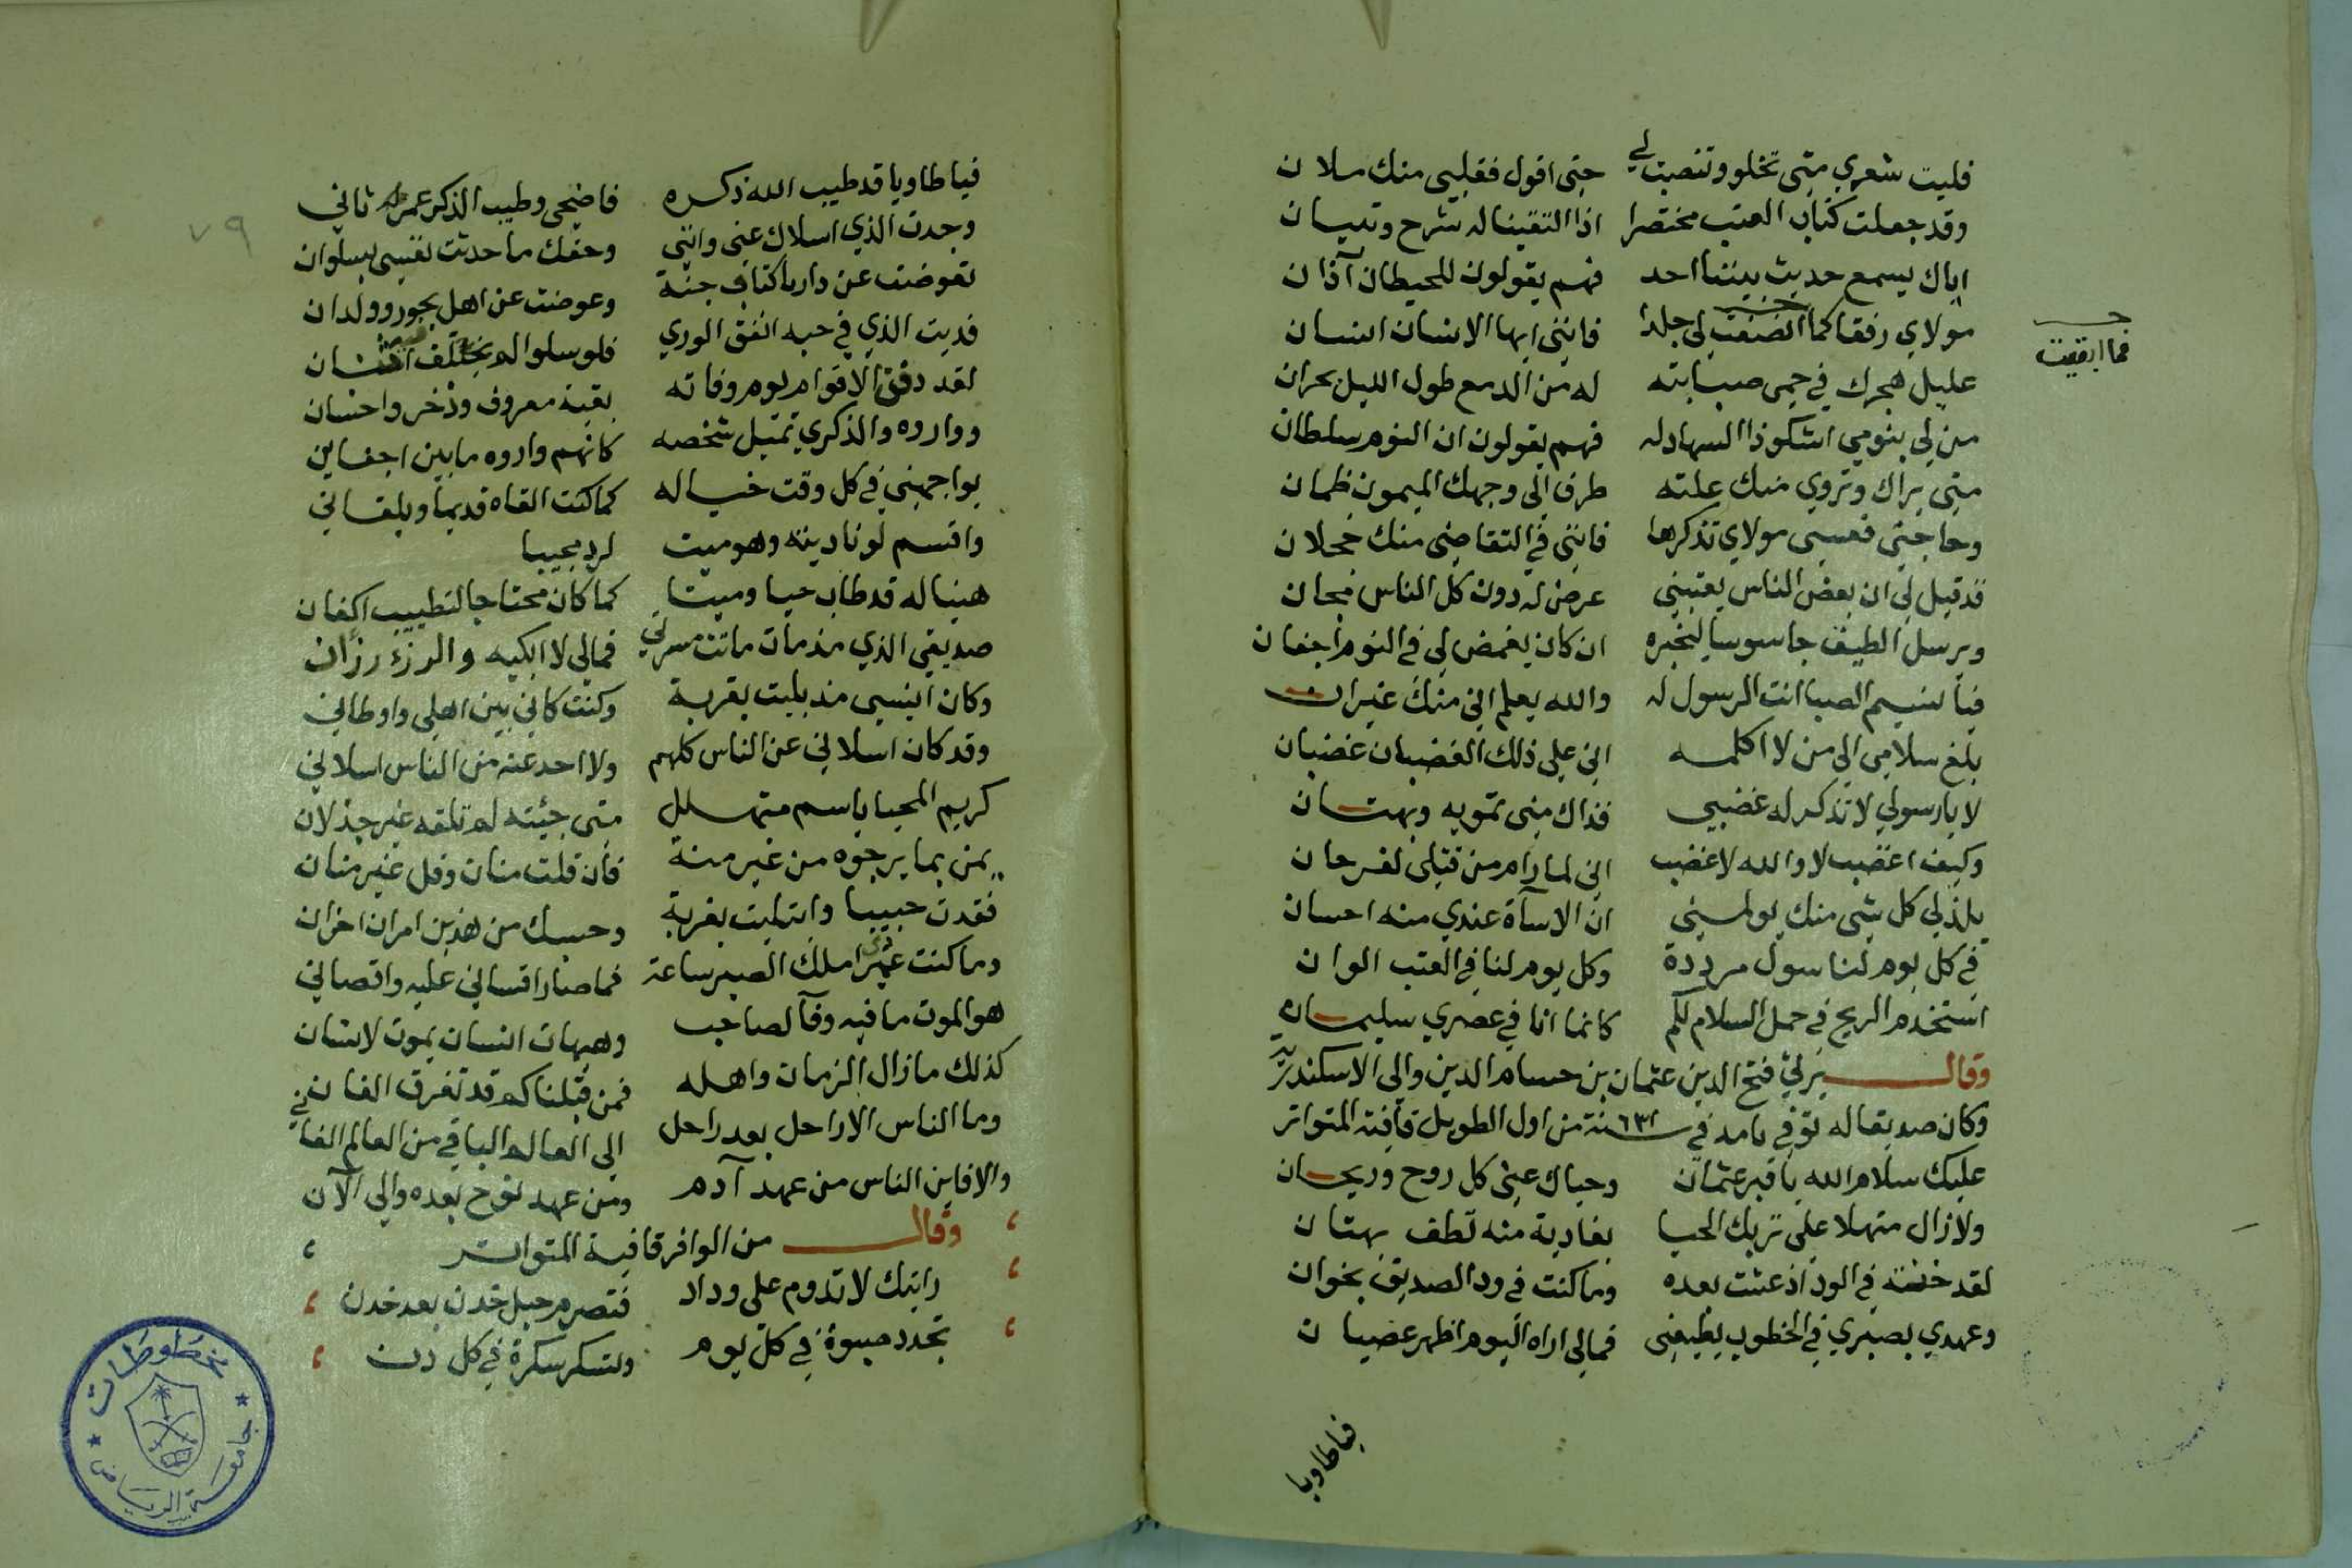 فليت شعري متى تخلو وتنصت لي حتى اقول فقلبي منك ملان
وقد جعلت كتاب العتب مختصرا اذا التقينا له شرح وتبيان
اياك يسمع حديث بيننا احد فهم يقولون للحيطان آذان
مولاي رفقا كما انصفت لي جلدا فانني ايها الانسان انسان
فما ابقيت
عليل هجرك في حمى صبابته له من الدمع طول الليل بحران
من لي بنومي اشكو ذا السهاد له فهم يقولون ان النوم سلطان
متى يراك وتروي منك علته طرف الى وجهك الميمون ظمان
وحاجتي فعسى مولاي تذكرها فانني في التقاضي منك خجلان
قد قيل لي ان بعض الناس يعتبني عرضي له دون كل الناس مجان
ويرسل الطيف جاسوسا ليخبره ان كان يغمض لي في النوم اجفان
فيا نسيم الصبا انت الرسول له والله يعلم اني منك غيران
بلغ سلامي الى من لا اكلمه اني على ذلك الغضبان غضبان
لا يا رسولي لا تذكر له غضبي فذاك مني تمويه وبهتان
وكيف اغضب لا والله لا غضب اني لما رام من قتلي لفرحان
يلذ لي كل شي منك يولمني ان الاسآة عندي منه احسان
في كل يوم لنا سول مرددة وكل يوم لنا في العتب الوان
استخدم الريح في حمل السلام لكم كانما انا في عصري سليمان
وقال يرثي فتح الدين عثمان بن حسام الدين والي الاسكندرية
وكان صديقا له توفي بامد في سنة ٦٣١ من اول الطويل قافية المتواتر
عليك سلام الله يا قبر عثمان وحياك عني كل روح وريحان
ولا زال منهلا على تربك الحيا يغاديه منه لطف بهتان
لقد خنته في الود اذ عشت بعده وما كنت في ود الصديق بخوان
وعهدي بصبري في الخطوب يطيعني فمالي اراه اليوم اظهر عصيان
فيا طاويا
٧٩
فيا طاويا قد طيب الله ذكره فاضحى وطيب الذكر عمر له ثاني
وجدت الذي اسلاك عني وانني وحقك ما حدثت نفسي بسلوان
تعوضت عن دار باكناف جنة وعوضت عن اهل بحور وولدان
فديت الذي في حبه اتفق الوري فلو سلوا لم يختلف اثنان
لقد دفن الاقوام يوم وفاته بقية معروف وذخر واحسان
وواروه والذكري تمثل شخصه كانهم واروه ما بين اجفاني
يواجهني في كل وقت خياله كما كنت القاه قديما ويلقاني
واقسم لو ناديته وهو ميت لرد مجيبا
هنيا له قد طاب حيا وميتا كما كان محتاجا لتطييب اكفان
صديقي الذي مذ مات ماتت مسرتي فمالي لا ابكيه والرزء رزآن
وكان انيسي مذ بليت بغربة وكنت كاني بين اهلي واوطاني
وقد كان اسلاني عن الناس كلهم ولا احد عنه من الناس اسلاني
كريم المحيا باسم متهلل متى جئته لم تلقه غير جذلان
يمن بما يرجوه من غير منة فان قلت منان فقل غير منان
فقدت حبيبا وابتليت بغربة وحسبك من هذين امران اخران
وما كنت عنه املك الصبر ساعة فما صار اقساني عليه واقصاني
هو الموت ما فيه وفآ لصاحب وهيهات انسان يموت لانسان
كذلك ما زال الزمان واهله فمن قبلنا كم قد تفرق الفان
وما الناس الا راحل بعد راحل الى العالم الباقي من العالم الفاني
والا فاين الناس من عهد آدم ومن عهد نوح بعده والى الآن
وقال من الوافر قافية المتواتر
رايتك لا تدوم على وداد فتصرم حبل خدن بعد خدن
تجدد صبوة في كل يوم وتسكر سكرة في كل دن
مخطوطات
جامعة الرياض